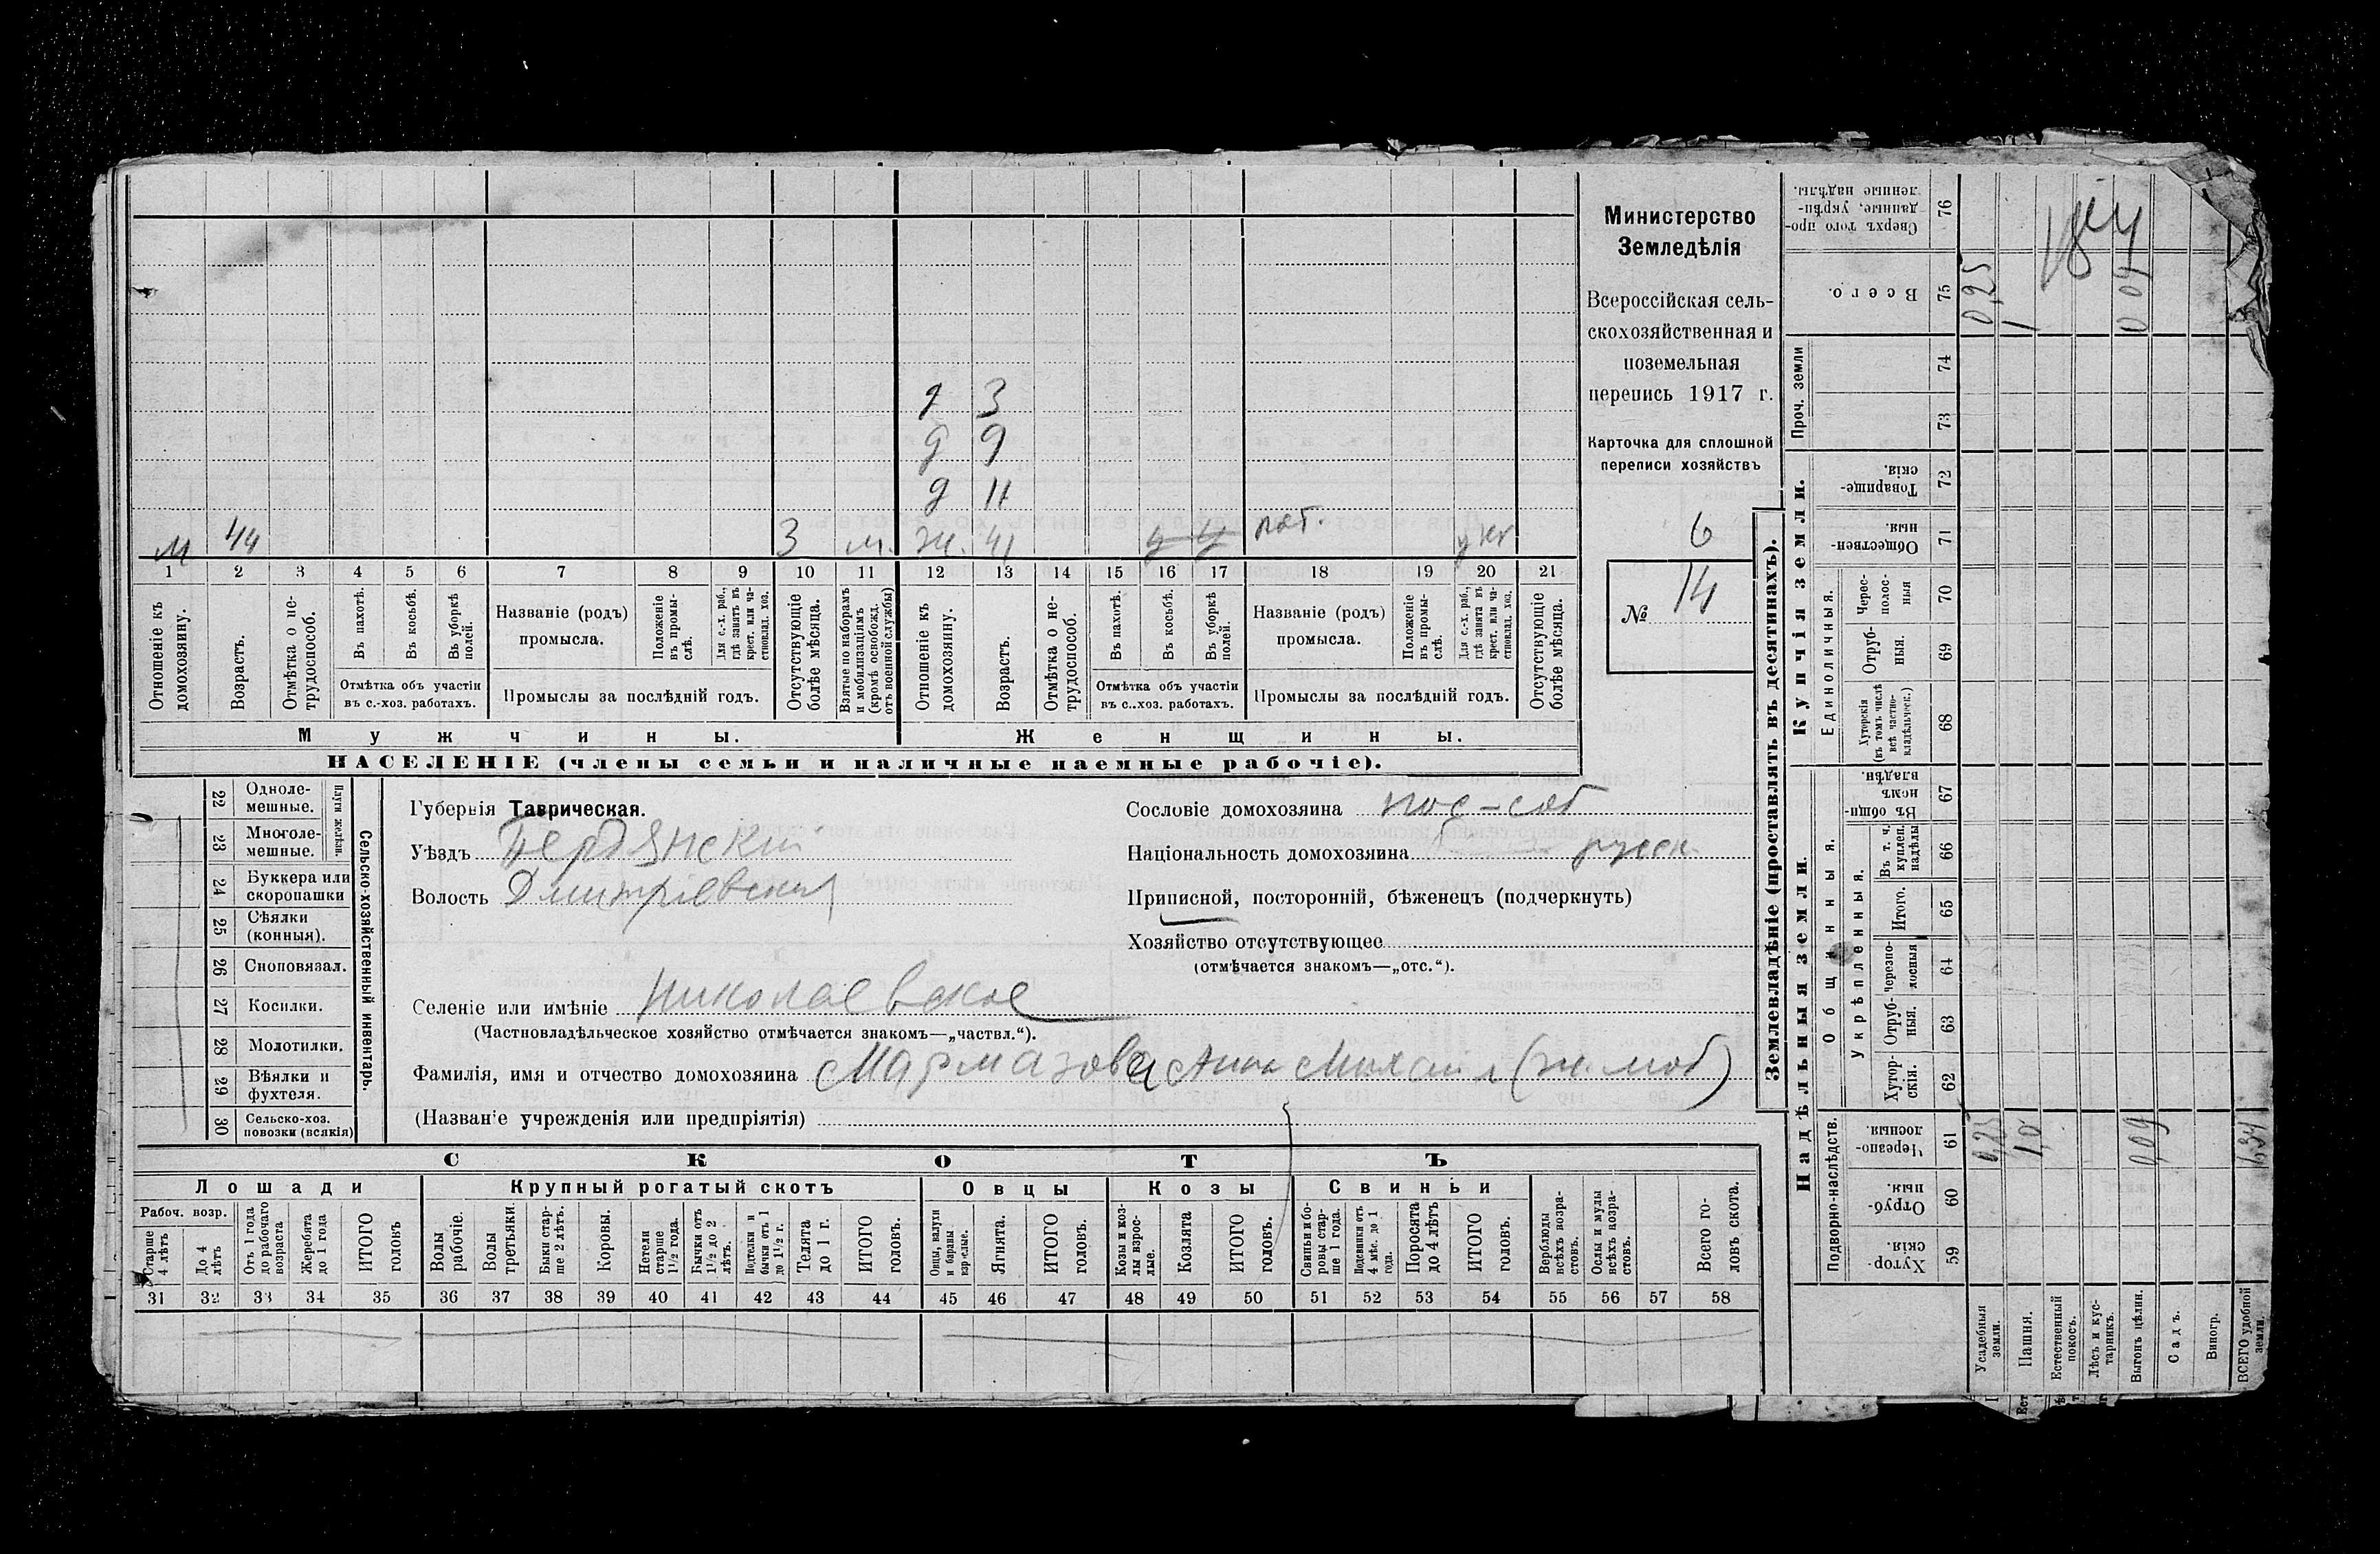 Министерство
Земледѣлія
Всероссійская сель-
скохозяйственная и
поземельная
перепись 1917 г.
Карточка для сплошной
переписи хозяйствъ
6
№ 14
д 3
д 9
д 11
м 44 3 м. ж. 41
1 2 3 4 5 6 7 8 9 10 11 12 13 14 15 16 17 18 19 20 21
Отношеніе къ домохозяину.
Возрастъ.
Отмѣтка о не-трудоспособ.
Въ пахотѣ.
Въ косьбѣ.
Въ уборкѣ полей.
Отмѣтка объ участіи
въ с.-хоз. работахъ.
Названіе (родъ)
промысла.
Положеніе въ промы-слѣ.
Для с.-х. раб., гдѣ занятъ въ крест. или ча-стновлад. хоз.
Промыслы за послѣдній годъ.
Отсутствующіе болѣе мѣсяца.
Взятые по наборамъ и мобилизаціямъ (кромѣ освобожд. отъ военной службы)
Отношеніе къ домохозяину.
Возрастъ.
Отмѣтка о не-трудоспособ.
Въ пахотѣ.
Въ косьбѣ.
Въ уборкѣ полей.
Отмѣтка объ участіи
въ с..хоз. работахъ.
Названіе (родъ)
промысла.
Положеніе въ промы-слѣ.
Для с.-х. раб., гдѣ занята въ крест. или ча-стновлад. хоз.
Промыслы за послѣдній годъ.
Отсутствующіе болѣе мѣсяца.
Мужчины. Женщины.
НАСЕЛЕНІЕ (члены семьи и наличные наемные рабочіе).
22 Одноле-мешные.
23 Многоле-мешные.
Плуги желѣзн.
24 Буккера или скоропашки
25 Сѣялки (конныя).
26 Сноповязал.
27 Косилки.
28 Молотилки.
29 Вѣялки и фухтеля.
30 Сельско-хоз. повозки (всякія)
Сельско-хозяйственный инвентарь.
Губернія Таврическая.
Уѣздъ Бердянскій
Волость Дмитріевская
Селеніе или имѣніе Николаевское
(Частновладѣльческое хозяйство отмѣчается знакомъ—„частвл.“).
Фамилія, имя и отчество домохозяина Мармазова Анна Михайл (ж. моб)
(Названіе учрежденія или предпріятія)
Сословіе домохозяина пос-соб
Національность домохозяина русск.
Приписной, посторонній, бѣженецъ (подчеркнуть)
Хозяйство отсутствующее
(отмѣчается знакомъ—„отс.“).
СКОТЪ
Лошади Крупный рогатый скотъ Овцы Козы Свиньи
Рабоч. возр.
Старше 4 лѣтъ
До 4 лѣтъ
Отъ 1 года до рабочаго возраста
Жеребята до 1 года
ИТОГО головъ
Волы рабочіе.
Волы третьяки.
Быки стар-ше 2 лѣтъ.
Коровы.
Нетели старше 1½ года.
Бычки отъ 1½ до 2 лѣтъ.
Подтелки и бычки отъ 1 до 1½ г.
Телята до 1 г.
ИТОГО головъ.
Овцы, валухи и бараны взрослые.
Ягнята.
ИТОГО головъ.
Козы и коз-лы взрос-лые.
Козлята
ИТОГО головъ.
Свиньи и бо-ровы стар-ше 1 года.
Подсвинки отъ 4 мѣс. до 1 года.
Поросята до 4 лѣтъ
ИТОГО головъ.
Верблюды всѣхъ возра-стовъ.
Ослы и мулы всѣхъ возра-стовъ.
Всего го-ловъ скота.
31 32 33 34 35 36 37 38 39 40 41 42 43 44 45 46 47 48 49 50 51 52 53 54 55 56 57 58
Землевладѣніе (проставлять въ десятинахъ).
Надѣльныя земли. Купчія земли. Проч. земли
Подворно-наслѣдств.
Общинныя.
Укрѣпленныя.
Единоличныя.
Хутор-скія. 59
Отруб-ныя. 60
Черезпо-лосныя. 61
Хутор-скія. 62
Отруб-ныя. 63
Черезпо-лосныя 64
Итого. 65
Въ т. ч. куплен. надѣлы 66
Въ общи-номъ владѣн. 67
Хуторскія (въ томъ числѣ всѣ частно-владѣльческ.) 68
Отруб-ныя. 69
Черес-полос-ныя 70
Обществен-ныя 71
Товарище-скія. 72
73
74
Всего. 75
Сверхъ того про-данные, укрѣп-ленные надѣлы. 76
Усадебныя земли. 0,25 0,25
Пашня. 1,0 1
Естественный покосъ.
Лѣсъ и кус-тарникъ.
Выгонъ цѣлин. 0,09 0 09
Садъ.
Виногр.
ВСЕГО удобной земли. 1,34